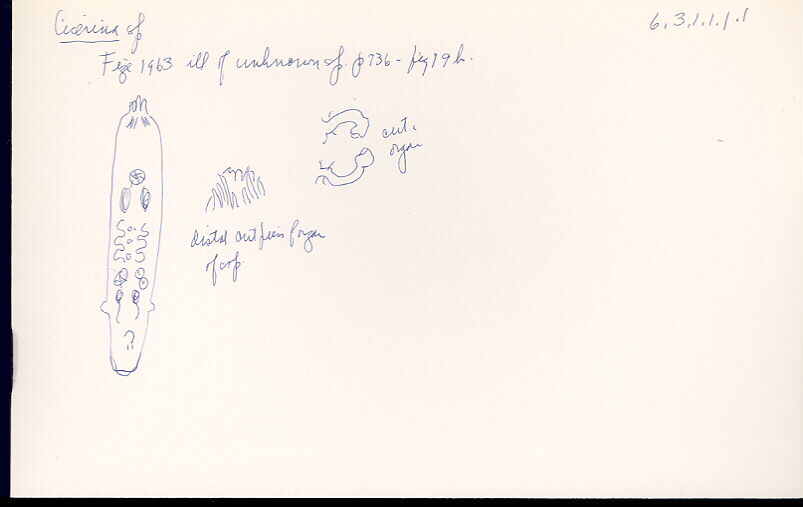 Cicerina sp
6.3.1.1.1.1
Fize 1963 ill of unknown sp. p 736 - fig 19 b.
cut.
organ
distal cut pieces of organ
of cop.
?